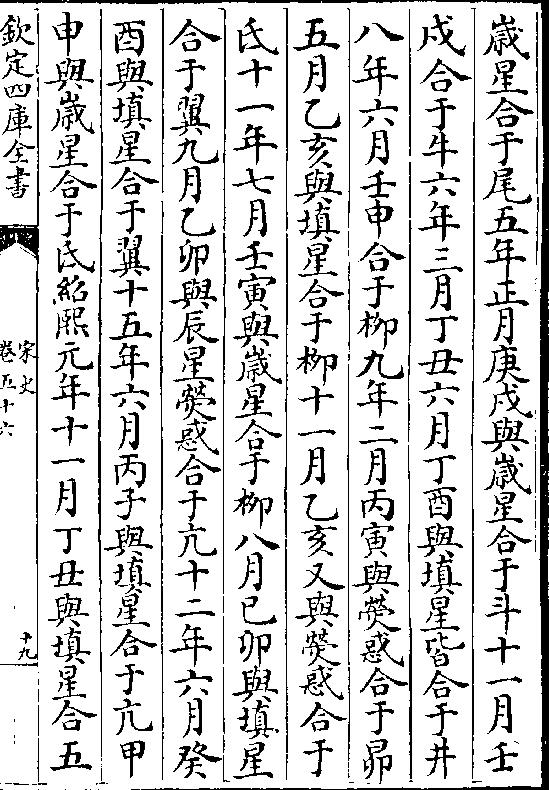 歲星合于尾五年正月庚戌與歲星合于斗十一月壬
戌合于牛六年三月丁丑六月丁酉與填星皆合于井
八年六月壬申合于柳九年二月丙寅與熒惑合于昴
五月乙亥與填星合于柳十一月乙亥又與熒惑合于
氐十一年七月壬寅與歲星合于柳八月已卯與填星
合于翼九月乙卯與辰星熒惑合于亢十二年六月癸
酉與填星合于翼十五年六月丙子與填星合于亢甲
申與歲星合于氐紹熙元年十一月丁丑與填星合五
欽定四庫全書
宋史
卷五十六
十九